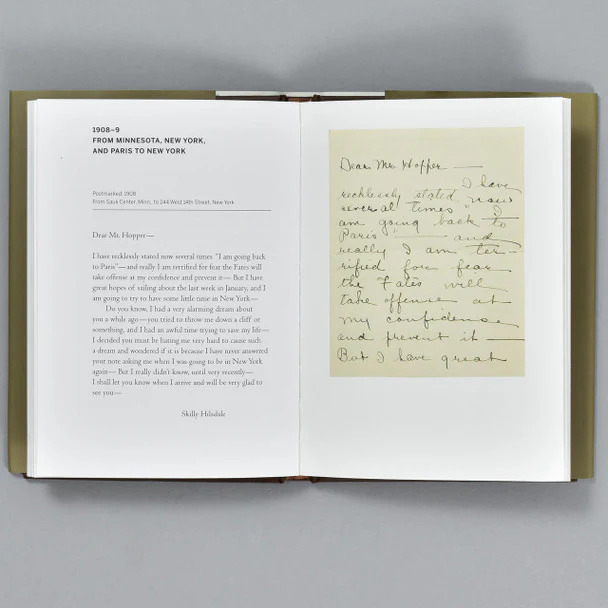 1908–9
FROM MINNESOTA, NEW YORK,
AND PARIS TO NEW YORK
Postmarked 1908
From Sauk Center, Minn., to 244 West 14th Street, New York
Dear Mr. Hopper—
I have recklessly stated now several times “I am going back
to Paris”—and really I am terrified for fear the Fates will
take offense at my confidence and prevent it— But I have
great hopes of sailing about the last week in January, and I
am going to try to have some little time in New York—
Do you know, I had a very alarming dream about
you a while ago—you tried to throw me down a cliff or
something, and I had an awful time trying to save my life—
I decided you must be hating me very hard to cause such
a dream and wondered if it is because I have never answered
your note asking me when I was going to be in New York
again— But I really didn’t know, until very recently—
I shall let you know when I arrive and will be very glad to
see you—
Skilly Hilsdale
Dear Mr Hopper —
I have
recklessly stated now
several times "I
am going back to
Paris" — and
really I am ter-
rified for fear
the Fates will
take offense at
my confidense
and prevent it —
But I have great